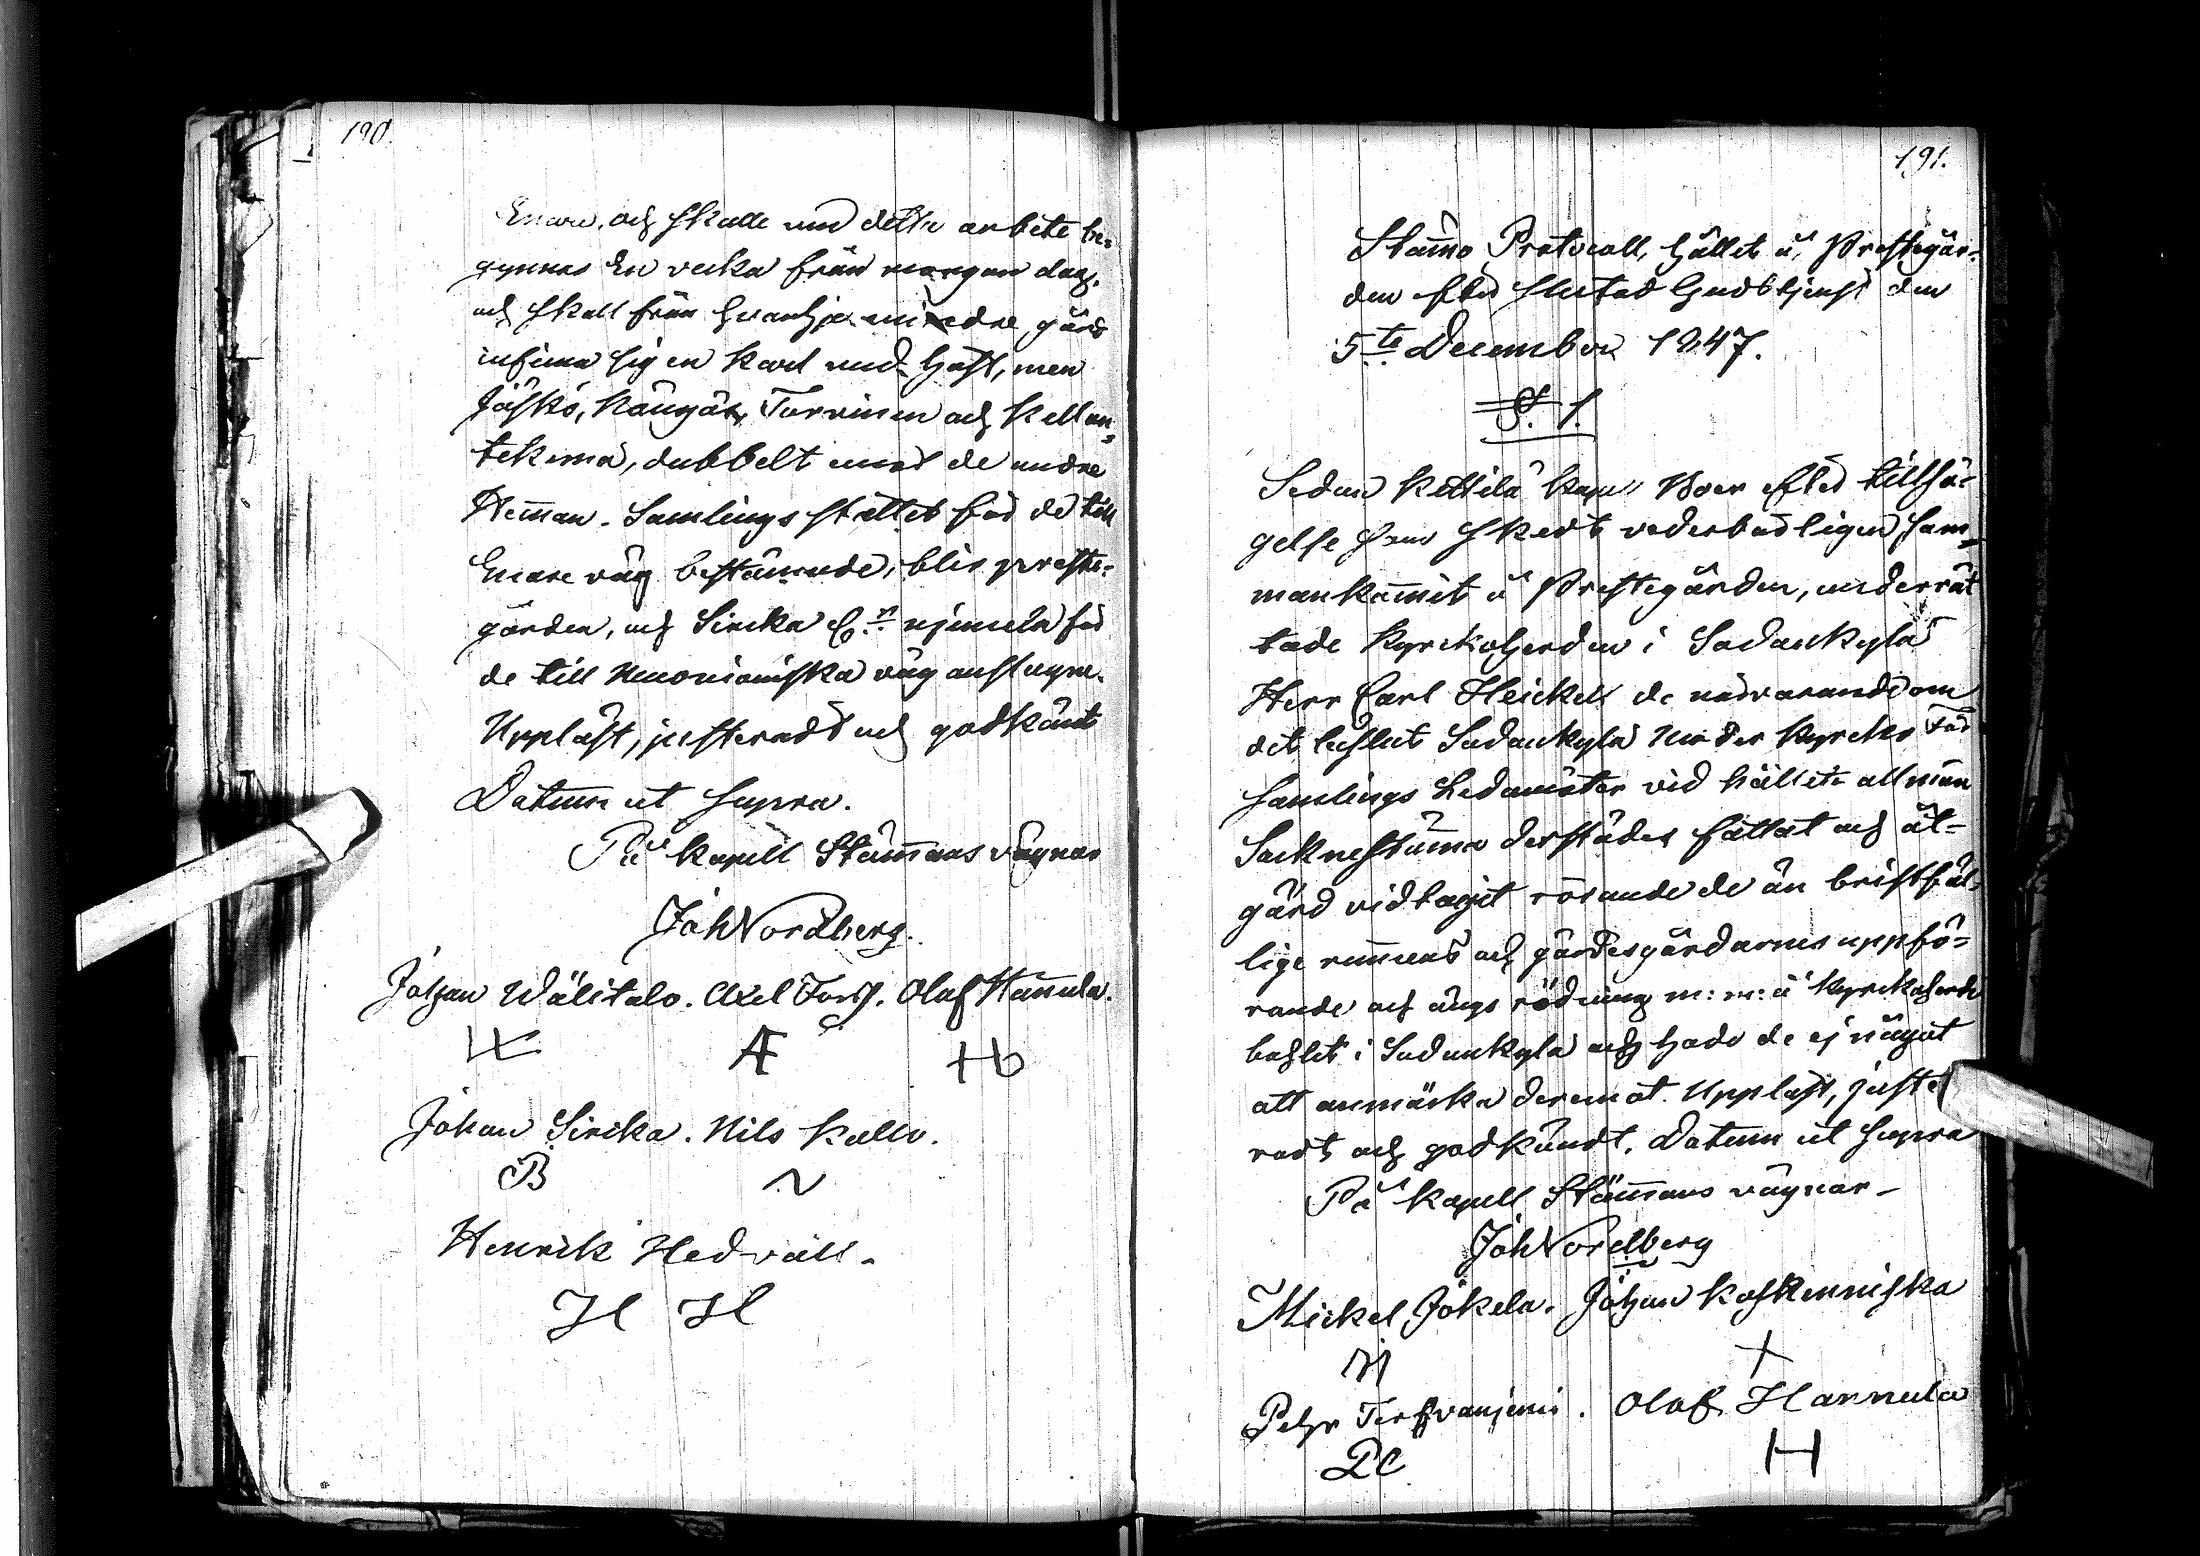 190.
Enare, och skulle med detta arbete be-
gynnas En vecka från morgon dag,
och skall från hvarhje mindre gård
infinna sig en karl med häst, men
Jöskö, Köngäs, Torvinen och Kellon-
tekemä, dubbelt mot de andre
Hem̅an. Samlingsstället för de till
Enare väg bestämde, blir preste-
gården, och Sircka by njemela för
de till Muonioniska väg anslagne.
Uppläst, justeradt och godkändt
Datum ut supra.
På Kapell Stäm̅ans vägnar
Joh Nordberg.
Johan Wälitalo. Axel Forss. Olof Han̅ula.
AF
Johan Sircka. Nils Kallo.
B N
Henrik Hedvall.
H H
191.
Stäm̅o Protocoll, hållet å Prestegår-
den efter slutad Gudstjenst den
5te December 1847.
§. 1.
Sedan Kittilä Kapell Boer efter tillsä-
gelse som skedt vederbörligen sam-
mankom̅it å Prestegården, underrät
tade Kyrkoherden i Sodankylä
Herr Carl Heickell de närvarande om
det beslut Sodankylä Moder Kyrko För
samlings Ledamöter vid hållit allmän
Socknestäm̅a derstädes fattat och åt-
gärd vidtagit rörande de än bristfäl-
lige rummens och gärdesgårdarnes uppfö-
rande och ängs rödning m: m: å Kyrkoherde
bohlet i Sodankylä och hade de ej något
att anmärka deremot. Uppläst, juste
radt och godkändt. Datum ut supra
På Kapell Stäm̅ans vägnar
Joh Nordberg
Mickel Jokela. Johan Koskenniska
M +
Pehr Terfvaniemi. Olof Hannula
PC H